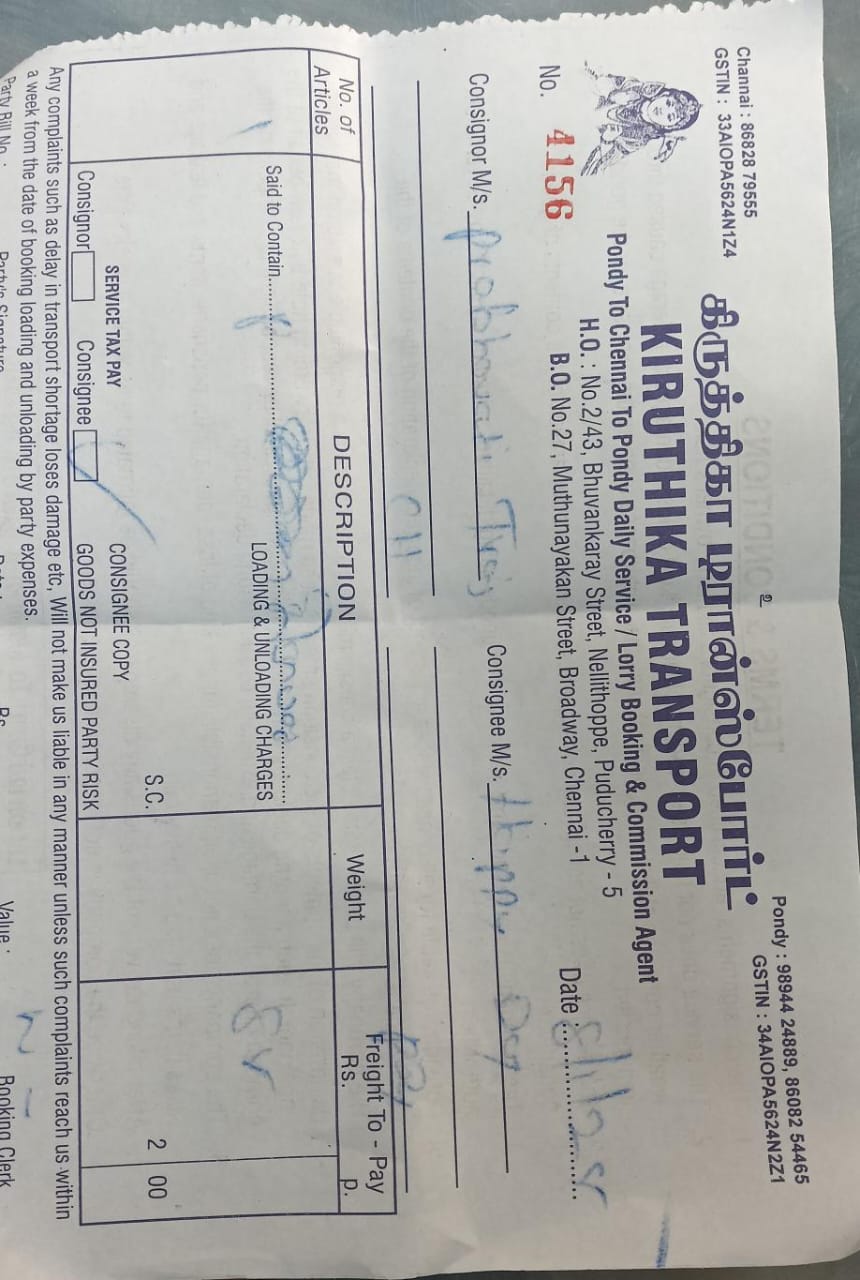 Channai : 86828 79555
GSTIN : 33AIOPA5624N1Z4
உ
Pondy : 98944 24889, 86082 54465
GSTIN : 34AIOPA5624N2Z1
கிருத்திகா டிரான்ஸ்போர்ட்
KIRUTHIKA TRANSPORT
Pondy To Chennai To Pondy Daily Service / Lorry Booking & Commission Agent
H.O. : No.2/43, Bhuvankaray Street, Nellithoppe, Puducherry - 5
B.O. No.27, Muthunayakan Street, Broadway, Chennai -1
No. 4156
Date :
Consignor M/s. Consignee M/s.
CH
No. of Articles DESCRIPTION Weight Freight To - Pay Rs. p.
1 Said to Contain
LOADING & UNLOADING CHARGES
S.C. 2 00
SERVICE TAX PAY CONSIGNEE COPY
Consignor Consignee GOODS NOT INSURED PARTY RISK
Any complaints such as delay in transport shortage loses damage etc, Will not make us liable in any manner unless such complaints reach us within
a week from the date of booking loading and unloading by party expenses.
Party Bill No. : Party's Signature Rs Value : Booking Clerk